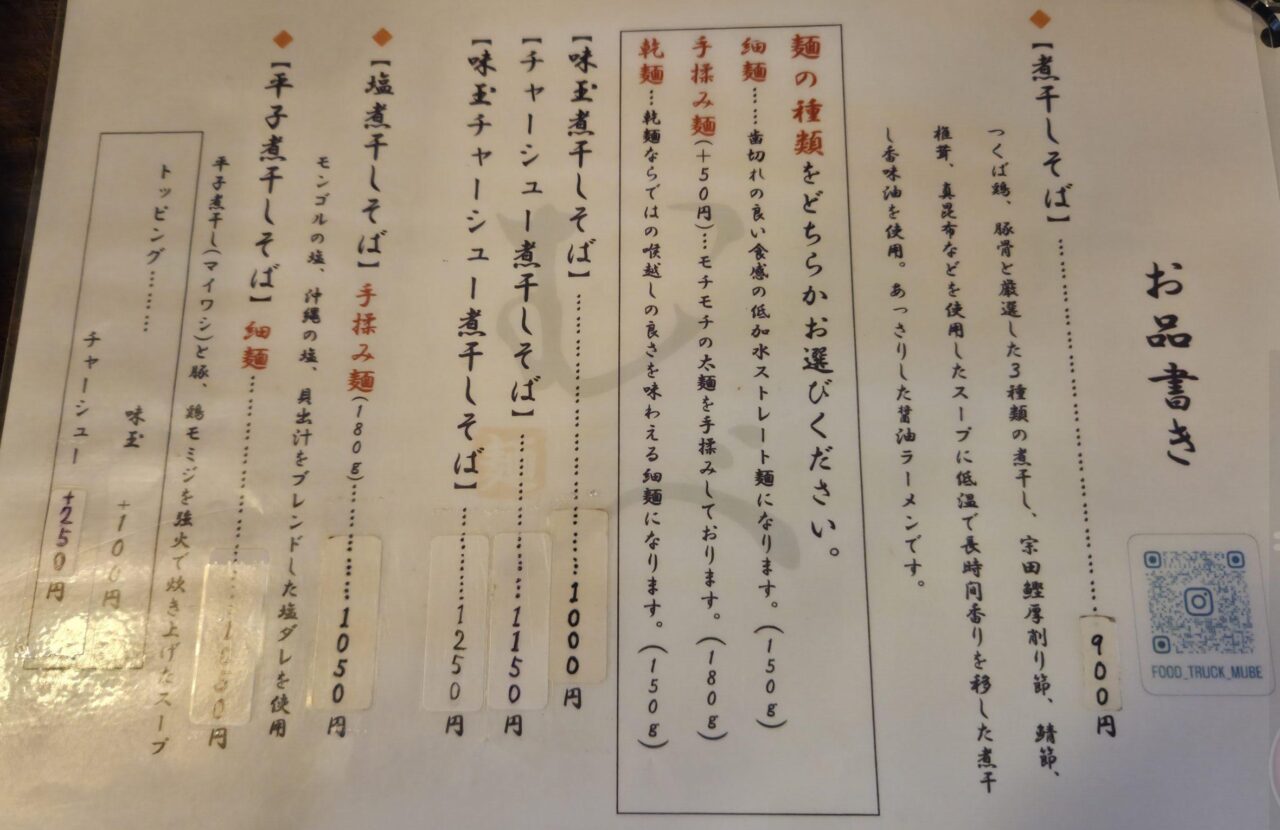 お品書き
FOOD_TRUCK_MUBE
◆【煮干しそば】……900円
つくば鶏、豚骨と厳選した3種類の煮干し、宗田鰹厚削り節、鯖節、
椎茸、真昆布などを使用したスープに低温で長時間香りを移した煮干
し香味油を使用。あっさりした醤油ラーメンです。
麺の種類をどちらかお選びください。
細麺……歯切れの良い食感の低加水ストレート麺になります。(150g)
手揉み麺(+50円)…モチモチの太麺を手揉みしております。(180g)
乾麺…乾麺ならではの喉越しの良さを味わえる細麺になります。(150g)
【味玉煮干しそば】……1000円
【チャーシュー煮干しそば】……1150円
【味玉チャーシュー煮干しそば】……1250円
◆【塩煮干しそば】手揉み麺(180g)……1050円
モンゴルの塩、沖縄の塩、貝出汁をブレンドした塩ダレを使用
◆【平子煮干しそば】細麺……1050円
平子煮干し(マイワシ)と豚、鶏モミジを強火で炊き上げたスープ
トッピング……
味玉 +100円
チャーシュー +250円
むべ